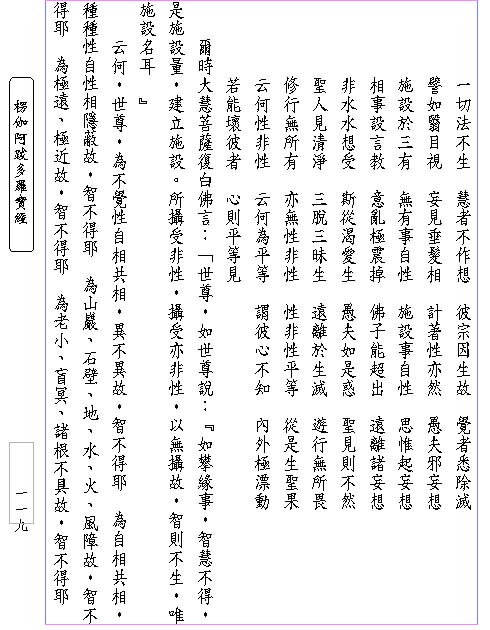 一切法不生　慧者不作想　彼宗因生故　覺者悉除滅
譬如翳目視　妄見垂髮相　計著性亦然　愚夫邪妄想
施設於三有　無有事自性　施設事自性　思惟起妄想
相事設言教　意亂極震掉　佛子能超出　遠離諸妄想
非水水想受　斯從渴愛生　愚夫如是惑　聖見則不然
聖人見清淨　三脫三昧生　遠離於生滅　遊行無所畏
修行無所有　亦無性非性　性非性平等　從是生聖果
云何性非性　云何為平等　謂彼心不知　內外極漂動
若能壞彼者　心則平等見
爾時大慧菩薩復白佛言：「世尊，如世尊說：『如攀緣事，智慧不得，
是施設量，建立施設。所攝受非性，攝受亦非性，以無攝故，智則不生，唯
施設名耳　』
云何，世尊，為不覺性自相共相，異不異故，智不得耶　為自相共相，
種種性自性相隱蔽故，智不得耶　為山巖、石壁、地、水、火、風障故，智不
得耶　為極遠、極近故，智不得耶　為老小、盲冥、諸根不具故，智不得耶
楞伽阿跋多羅寶經
一一九